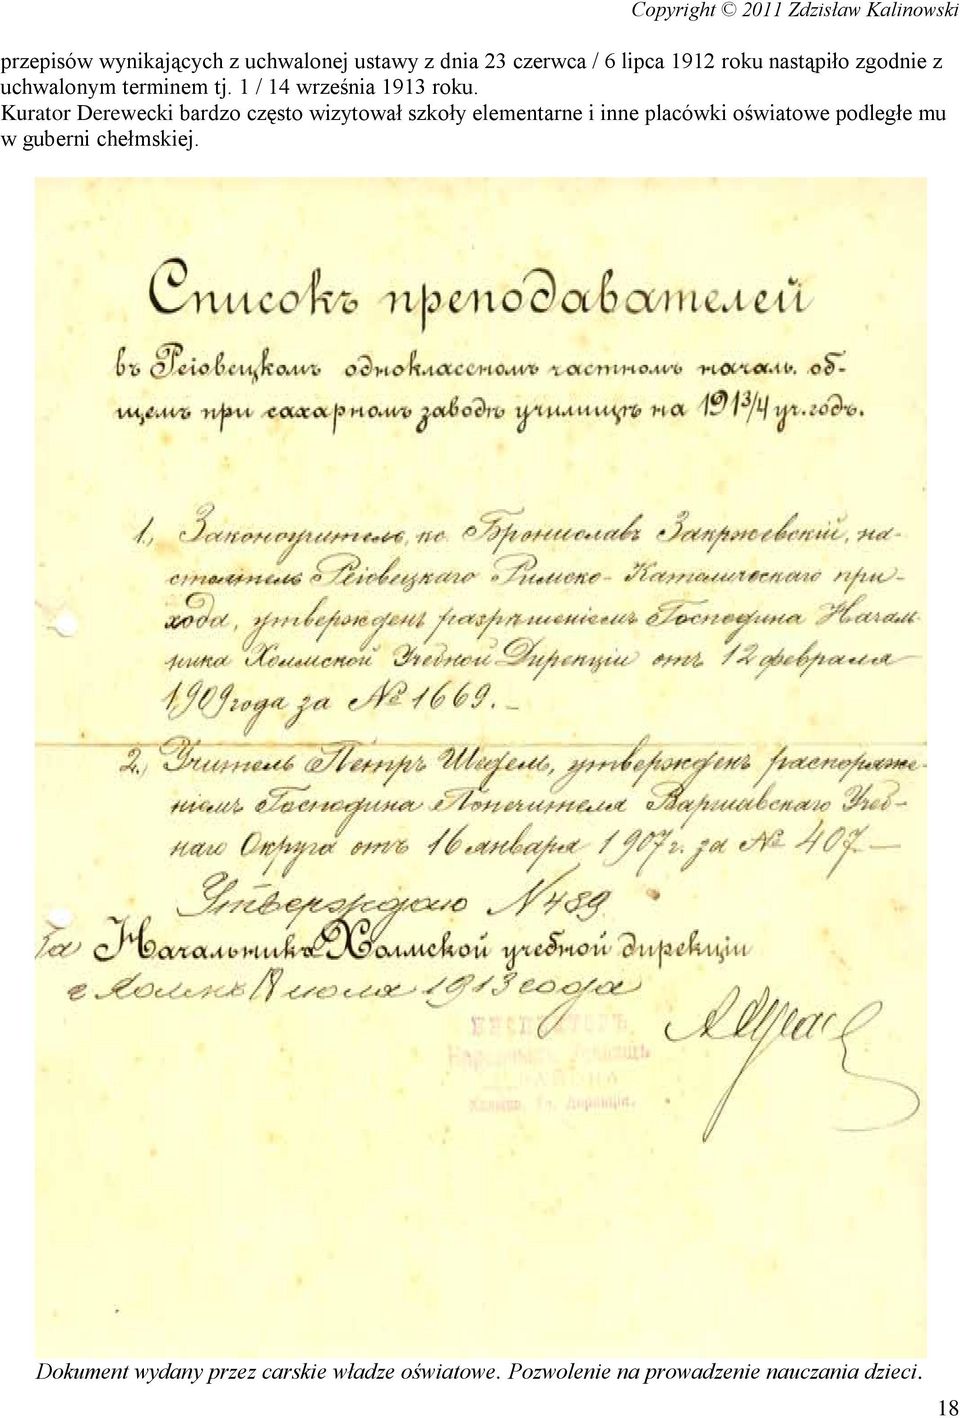 Copyright © 2011 Zdzisław Kalinowski
przepisów wynikających z uchwalonej ustawy z dnia 23 czerwca / 6 lipca 1912 roku nastąpiło zgodnie z
uchwalonym terminem tj. 1 / 14 września 1913 roku.
Kurator Derewecki bardzo często wizytował szkoły elementarne i inne placówki oświatowe podległe mu
w guberni chełmskiej.
Списокъ преподавателей
въ Реіовецкомъ одноклассномъ частномъ началь. об-
щемъ при сахарномъ заводѣ училищѣ на 1913/4 уч. годъ.
1., Законоучитель, кс. Брониславъ Закржевскій, на-
стоятель Реіовецкаго Римско-Католическаго при-
хода, утвержденъ разрѣшеніемъ Господина Началь-
ника Холмской Учебной Дирекціи отъ 12 февраля
1909 года за № 1669. –
2., Учитель Петръ Шедель, утвержденъ распоряже-
ніемъ Господина Попечителя Варшавскаго Учеб-
наго Округа отъ 16 января 1907 г. за № 407. –
Утверждаю N 489
За Начальникъ Холмской учебной дирекціи
г. Холмъ июля 1913 года
ИНСПЕКТОРЪ
Народныхъ Училищъ
РАЙОНА
Холмск. Уч. Дирекціи.
Dokument wydany przez carskie władze oświatowe. Pozwolenie na prowadzenie nauczania dzieci.
18